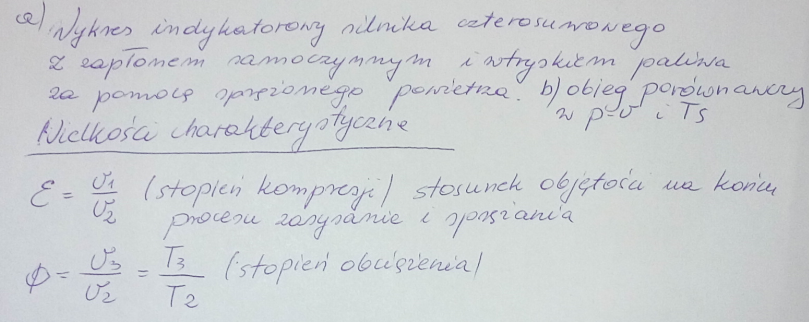 a) Wykres indykatorowy silnika czterosuwowego
z zapłonem samoczynnym i wtryskiem paliwa
za pomocą sprężonego powietrza. b) obieg porównawczy
w p-v i TS
Wielkości charakterystyczne
ε = v1/v2 (stopień kompresji) stosunek objętości na końcu
procesu zasysanie i sprężania
φ = v3/v2 = T3/T2 (stopień obciążenia)